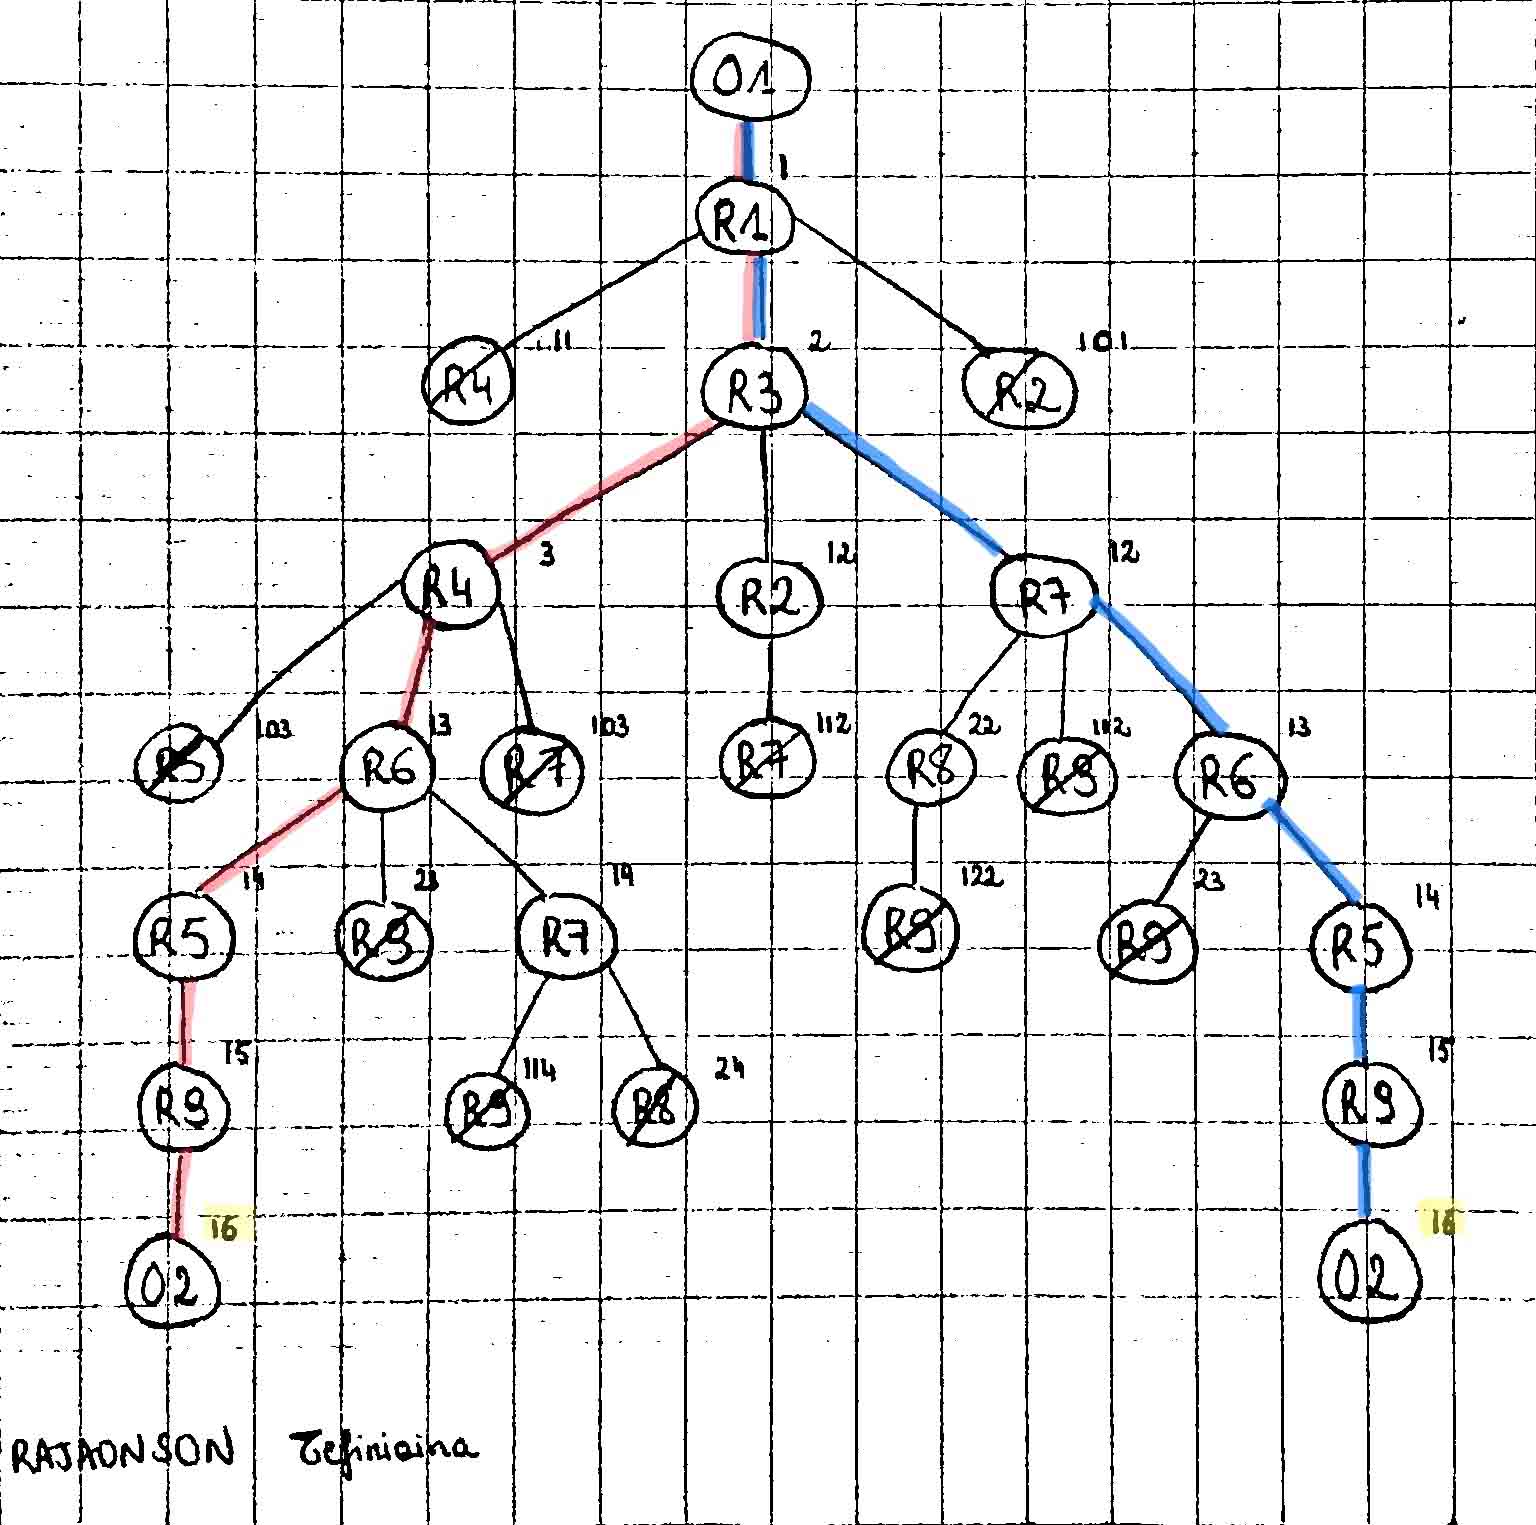 O1
1
R1
R4 111 R3 2 R2 101
R4 3 R2 12 R7 12
R5 103 R6 13 R7 103 R7 112 R8 22 R9 112 R6 13
R5 14 R9 23 R7 14 R9 122 R9 23 R5 14
R9 15 R9 114 R8 24 R9 15
O2 16 O2 16
RAJAONSON Tefiniaina